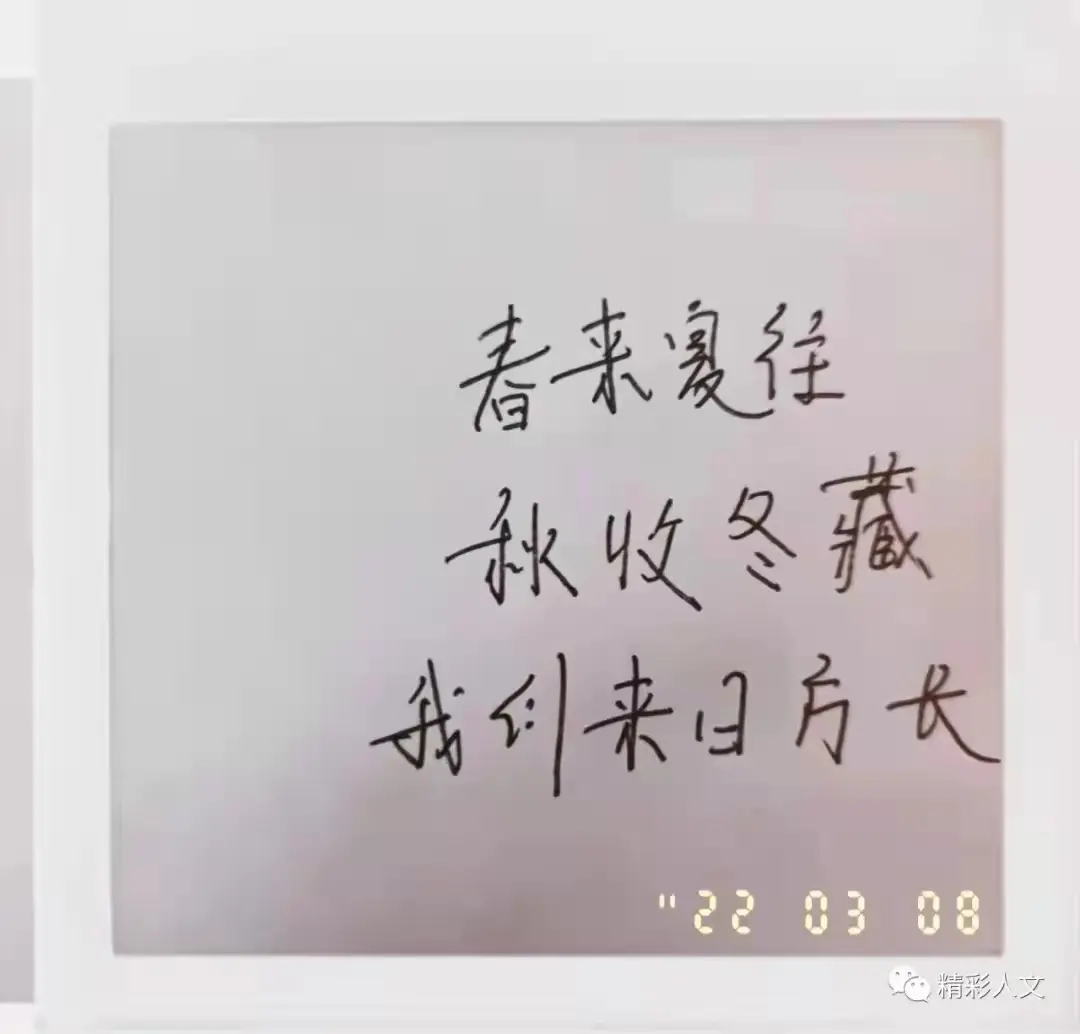 春来夏往
秋收冬藏
我们来日方长
"22 03 08
精彩人文